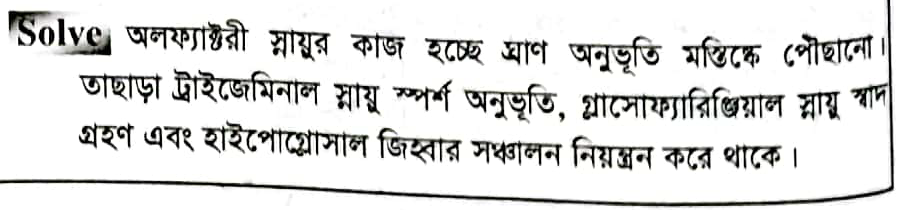 Solve অলফ্যাক্টরী স্নায়ুর কাজ হচ্ছে ঘ্রাণ অনুভূতি মস্তিষ্কে পৌছানো।
তাছাড়া ট্রাইজেমিনাল স্নায়ু স্পর্শ অনুভূতি, গ্লসোফ্যারিঞ্জিয়াল স্নায়ু স্বাদ
গ্রহণ এবং হাইপোগ্লোসাল জিহ্বার সঞ্চালন নিয়ন্ত্রন করে থাকে।